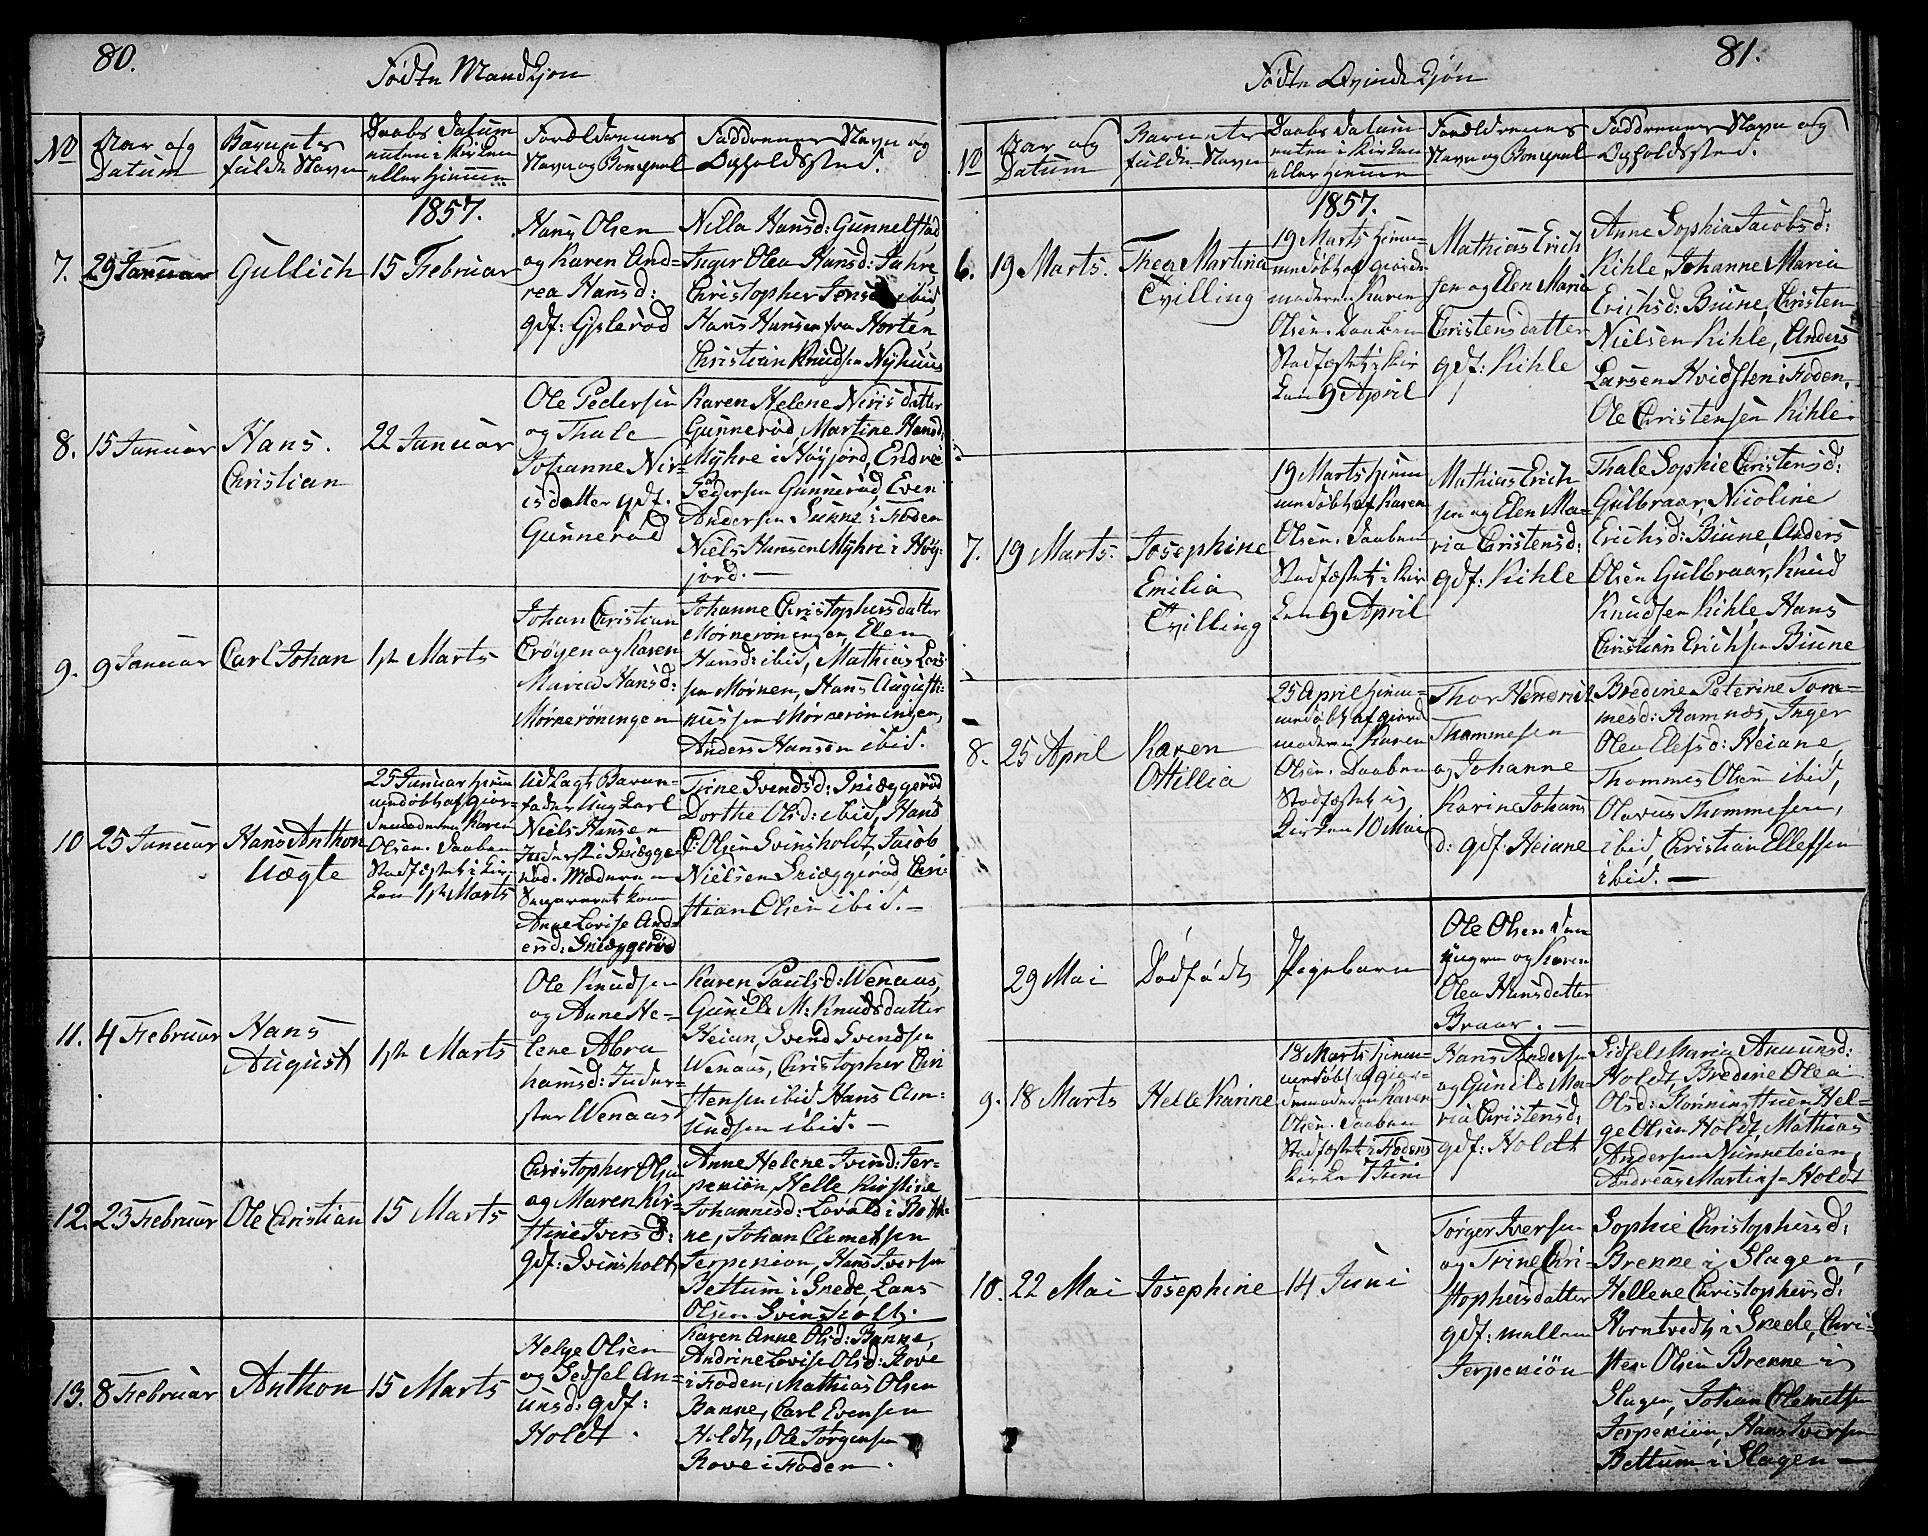 80.
Fødte Mandkjøn
No
Aar og
Datum
Barnets
fulde Navn
Daabs Datum
enten i Kirken
eller Hjemme
Forældrenes
Navn og Bopæl
Faddernes Navn og
Opholdssted.
1857.
7.
29 Januar
Gullich
15 Februar
Hans Olsen
og Karen And-
rea Hansd:
gdf: Gjelerød
Nilla Hansd: Gunnelstad
Inger Olea Hansd: Jahre
Christopher Jens ibid
Hans Hansen fra Horten,
Christian Knudsen Nyhuus
8.
15 Januar
Hans.
Christian
22 Januar
Ole Pedersen
og Thale
Johanne Nir-
isdatter gdf.
Gunnerød
Karen Helene Nirisdatter
Gunnerød, Martine Hansd:
Myhre i Høyjord, Endre
Pedersen Gunnerød, Even
Andersen Sunne i Foden
Niels Hansen Myhre i Høy-
jord. —
9.
9 Januar
Carl Johan
1ste Marts
Johan Christian
Crøyen og Karen
Maria Hansd:
Mørnerøningen
Johanne Christophersdatter
Mørnerøningen, Elen
Hansd: ibid, Mathias Lar-
sen Mørnen, Hans Augusti-
nussen Mørnerøningen,
Anders Hansen ibid.
10
25 Januar
Hans Anthon
Uægte
25 Januar Hjem-
mendøbt af Gjor-
demoderen Karen
Olsen. Daaben
Stadfæstet i Kir-
ken 1ste Marts
Udlagt Barne-
fader Ung Karl
Niels Hansen
Inderst i Sniægge-
rød. Moderen
Anne Lovise And-
ersd: Sniæggerød
Trine Svendsd: Sniæggerød
Dorthe Olsd: ibid, Hans
P: Olsen Svinsholt, Jacob
Nielsen Sniæggerød Chri-
stian Olsen ibid. —
11.
4 Februar
Hans
August
1ste Marts
Ole Knudsen
og Anne He-
lene Abra-
hamsd: Inder-
ster Wenaas
Karen Paulsd: Wenaas,
Gunele M: Knudsdatter
Heian, Svend Svendsen
Wenaas, Christopher Chri
stensen ibid Hans Am-
undsen ibid. —
12.
23 Februar
Ole Christian
15 Marts
Christopher Olsen
og Maren Kir-
stine Iversd:
gdf: Svinsholt
Anne Helene Ivind: Jer-
pekiøn, Helle Kirstine
Johannesd: Lovald i Both-
ne, Johan Clemetsen
Jerpekiøn, Hans Iversen
Bettum i Snede, Lars
Olsen Svinsholt.
13.
8 Februar
Anthon
15 Marts
Helge Olsen
og Sedsel Am-
unsd: gdf:
Holdt.
Karen Anne Olsd: Banne,
Andrine Lovise Olsd: Rove
i Foden, Mathias Olsen
Banne, Carl Evensen
Holdt, Ole Jørgensen
Rove i Foden.
81.
Fødte Qvindekjøn
No
Aar og
Datum
Barnets
fulde Navn
Daabs Datum
enten i Kirken
eller Hjemme
Forældrenes
Navn og Bopæl
Faddernes Navn og
Opholdssted.
1857.
6.
19 Marts.
Thea Martina
Tvilling
19 Marts Hjem-
mendøbt af Giorde
moderen Karen
Olsen. Daaben
Stadfæstet i Kir
ken 9 April
Mathias Erich
sen og Elen Maria
Christensdatter
gdf: Kihle
Anne Sophia Jacobsd:
Kihle, Johanne Maria
Erichsd: Biune, Christen
Nielsen Kihle, Anders
Larsen Hvidsten i Foden,
Ole Christensen Kihle.
7.
19 Marts.
Josephine
Emilia
Tvilling
19 Marts Hjem
mendøbt af Karen
Olsen. Daaben
Stadfæstet i Kir
ken 9 April
Mathias Erich
sen og Elen Ma-
ria Christensd:
gdf: Kihle
Thale Sophie Christensd:
Gulbraar, Nicoline
Erichsd: Biune, Anders
Olsen Gulbraar, Knud
Knudsen Kihle, Hans
Christian Erichsen Biune
8.
25 April
Karen
Ottillia
25 April Hjem-
mendøbt af Giorde
moderen Karen
Olsen. Daaben
Stadfæstet i
Kirken 10 Mai
Thor Hendrik
Thommesen
og Johanne
Karine Johans
d: gdf: Heiane
Bredine Peterine Tom-
mesd: Ramnæs, Inger
Olea Elefsd: Heiane,
Thommes Olsen ibid,
Olavus Thommesen,
ibid Christian Ellefsen
ibid. —
29 Mai
Dødfødt
Pigebarn
Ole Olsen
og Karen
Olea Hansdatter
Braar. —
9.
18 Marts
Helle Karine
18 Marts Hjem-
mendøbt af Gior-
demoderen Karen
Olsen. Daaben
Stadfæstet i Fodens
Kirke 7 Juni
Hans Andersen
og Gunele Ma-
ria Christensd:
gdf: Holdt
Sidsel Maria Amunsd:
Holdt, Bredine Olea
Olsd: Rønningthuen, Hel-
ge Olsen Holdt, Mathias
Andersen Vinneteien,
Andreas Martins- Holdt
10.
22 Mai
Josephine
14 Juni
Torger Iversen
og Trine Chri-
stophersdatter
gdf: mellem
Jerpekiøn
Sophie Christophersd:
Brekke i Slagen,
Hellene Christophersd:
Horntvedt i Snede, Chri-
sten Olsen Brekke i
Slagen, Johan Clemetsen
Jerpekiøn, Hans Iversen
Bettum i Slagen —